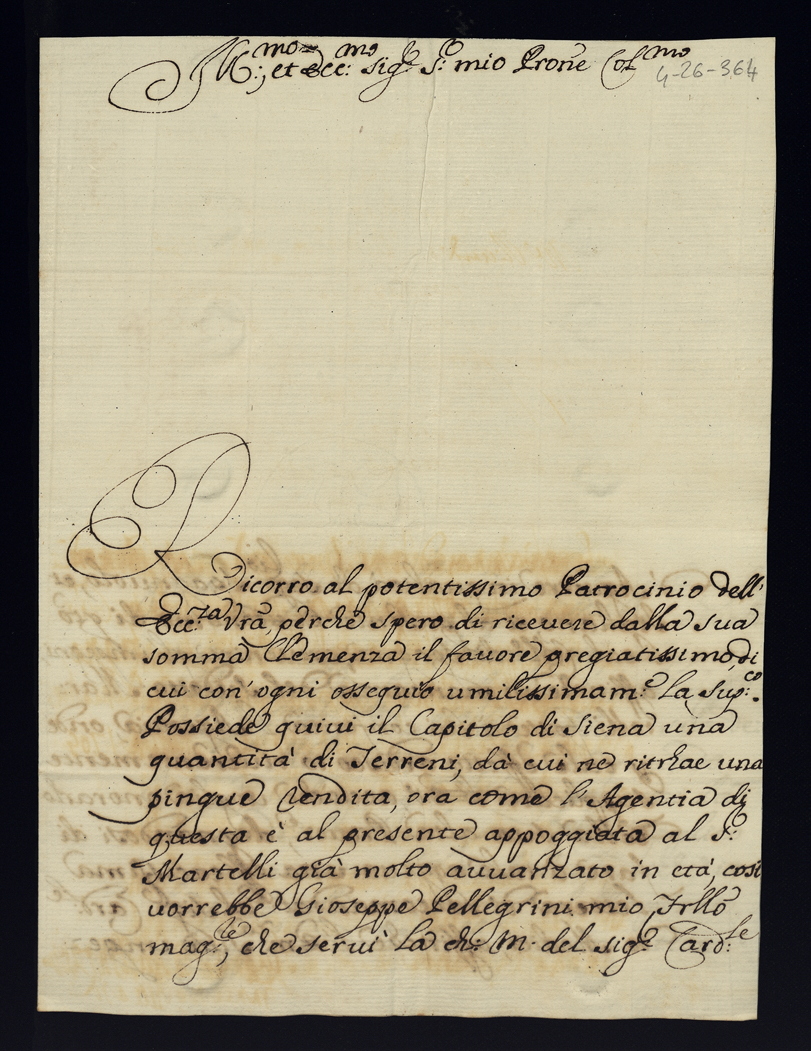 Ill:mo et Ecc:mo Sig:r S:r mio Prone Col:mo
4-26-364
Ricorro al potentissimo Patrocinio dell'
Ecc:za Vrã, perche spero di ricevere dalla sua
somma Clemenza il favore pregiatissimo, di
cui con' ogni ossequio umilissimam:e la sup:co.
Possiede quivi il Capitolo di Siena una
quantità di Terreni, dà cui ne ritrhae una
pingue rendita, ora come l'Agentia di
questa è al presente appoggiata al S:r
Martelli già molto avvanzato in età, così
vorrebbe Gioseppe Pellegrini mio Frllo
mag:le, che servì la ch: M: del sig:r Card:le